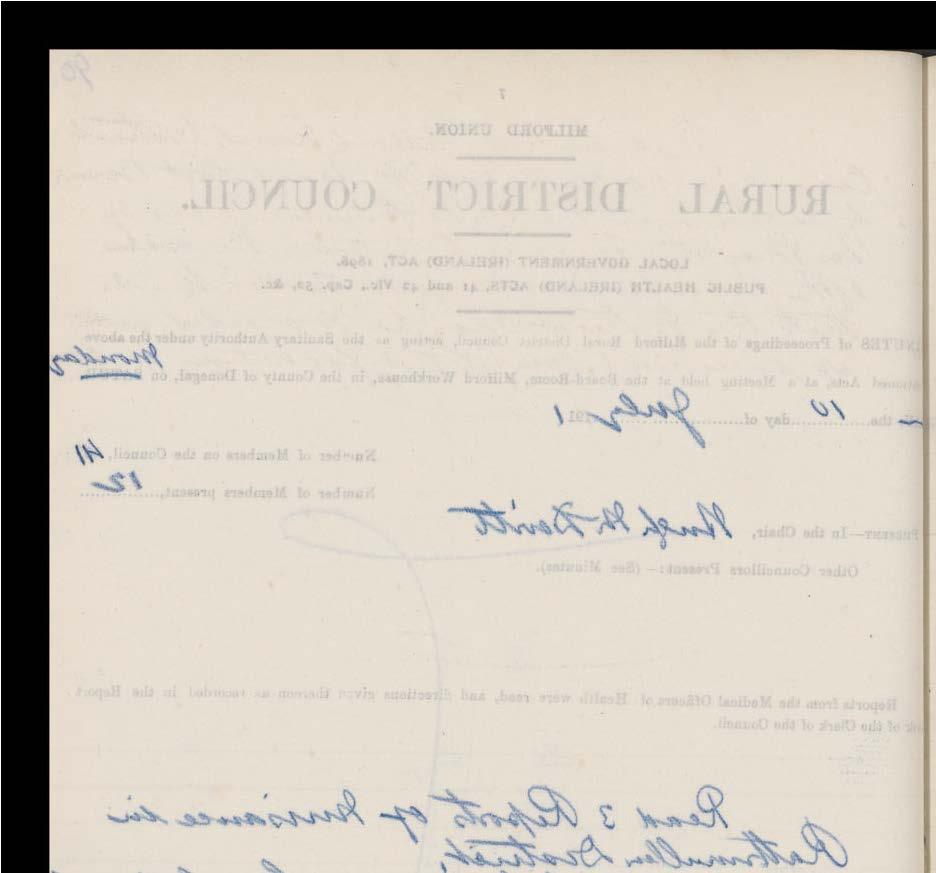 90
7
MILFORD UNION.
RURAL DISTRICT COUNCIL.
LOCAL GOVERNMENT (IRELAND) ACT, 1898.
PUBLIC HEALTH (IRELAND) ACTS, 41 and 42 Vic., Cap. 52, &c.
NUTES of Proceedings of the Milford Rural District Council, acting as the Sanitary Authority under the above
Monday
tioned Acts, at a Meeting held at the Board-Room, Milford Workhouse, in the County of Donegal, on
the 10 day of July 1911
Number of Members on the Council, 41
Number of Members present, 12
PRESENT—In the Chair, Hugh McDevitt
Other Councillors Present:—(See Minutes).
Reports from the Medical Officers of Health were read, and directions given thereon as recorded in the Report
of the Clerk of the Council.
Read 3 Reports of Nuisance in
Rathmullen District,